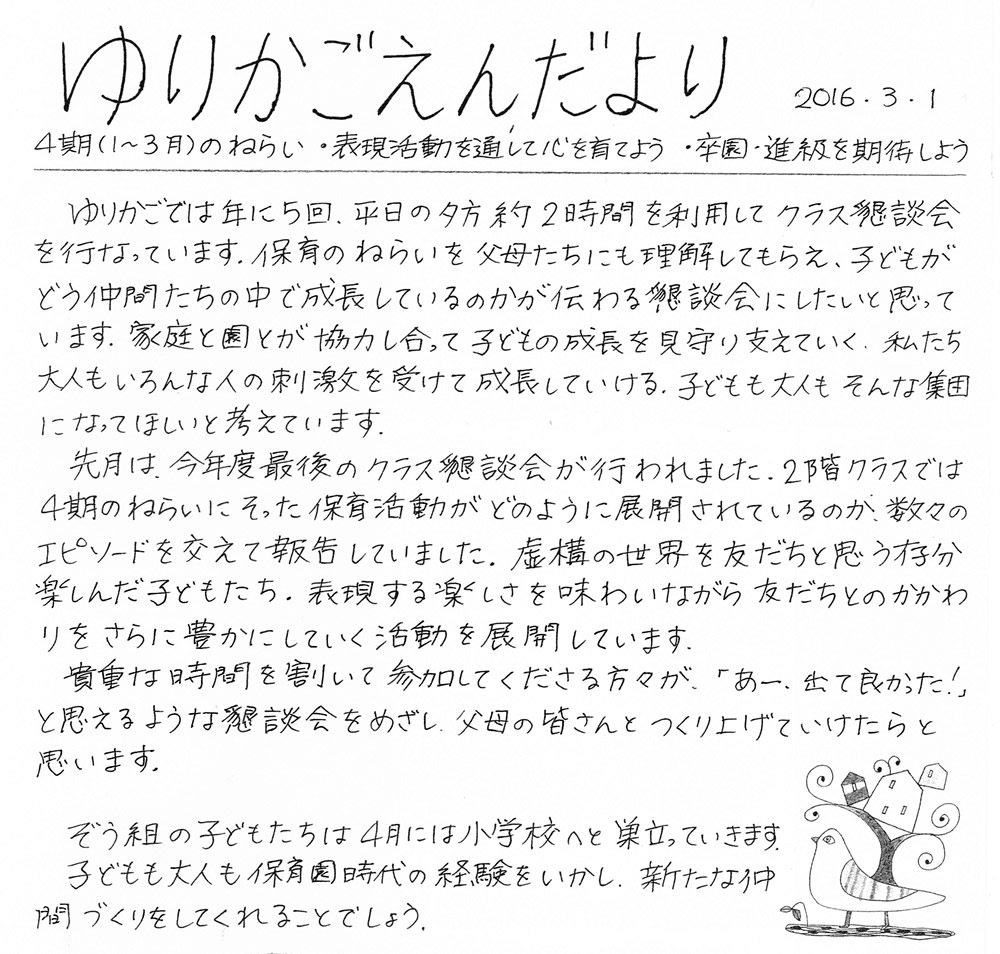 ゆりかごえんだより 2016・3・1
4期(1〜3月)のねらい ・表現活動を通して心を育てよう ・卒園・進級を期待しよう
ゆりかごでは年に5回、平日の夕方約2時間を利用してクラス懇談会
を行なっています。保育のねらいを父母たちにも理解してもらえ、子どもが
どう仲間たちの中で成長しているのかが伝わる懇談会にしたいと思って
います。家庭と園とが協力し合って子どもの成長を見守り支えていく、私たち
大人もいろんな人の刺激を受けて成長していける。子どもも大人もそんな集団
になってほしいと考えています。
先月は、今年度最後のクラス懇談会が行われました。2階クラスでは
4期のねらいにそった保育活動がどのように展開されているのか、数々の
エピソードを交えて報告していました。虚構の世界を友だちと思う存分
楽しんだ子どもたち。表現する楽しさを味わいながら友だちとのかかわ
りをさらに豊かにしていく活動を展開しています。
貴重な時間を割いて参加してくださる方々が、「あー、出て良かった!」
と思えるような懇談会をめざし、父母の皆さんとつくり上げていけたらと
思います。
ぞう組の子どもたちは4月には小学校へと巣立っていきます。
子どもも大人も保育園時代の経験をいかし、新たな仲
間づくりをしてくれることでしょう。